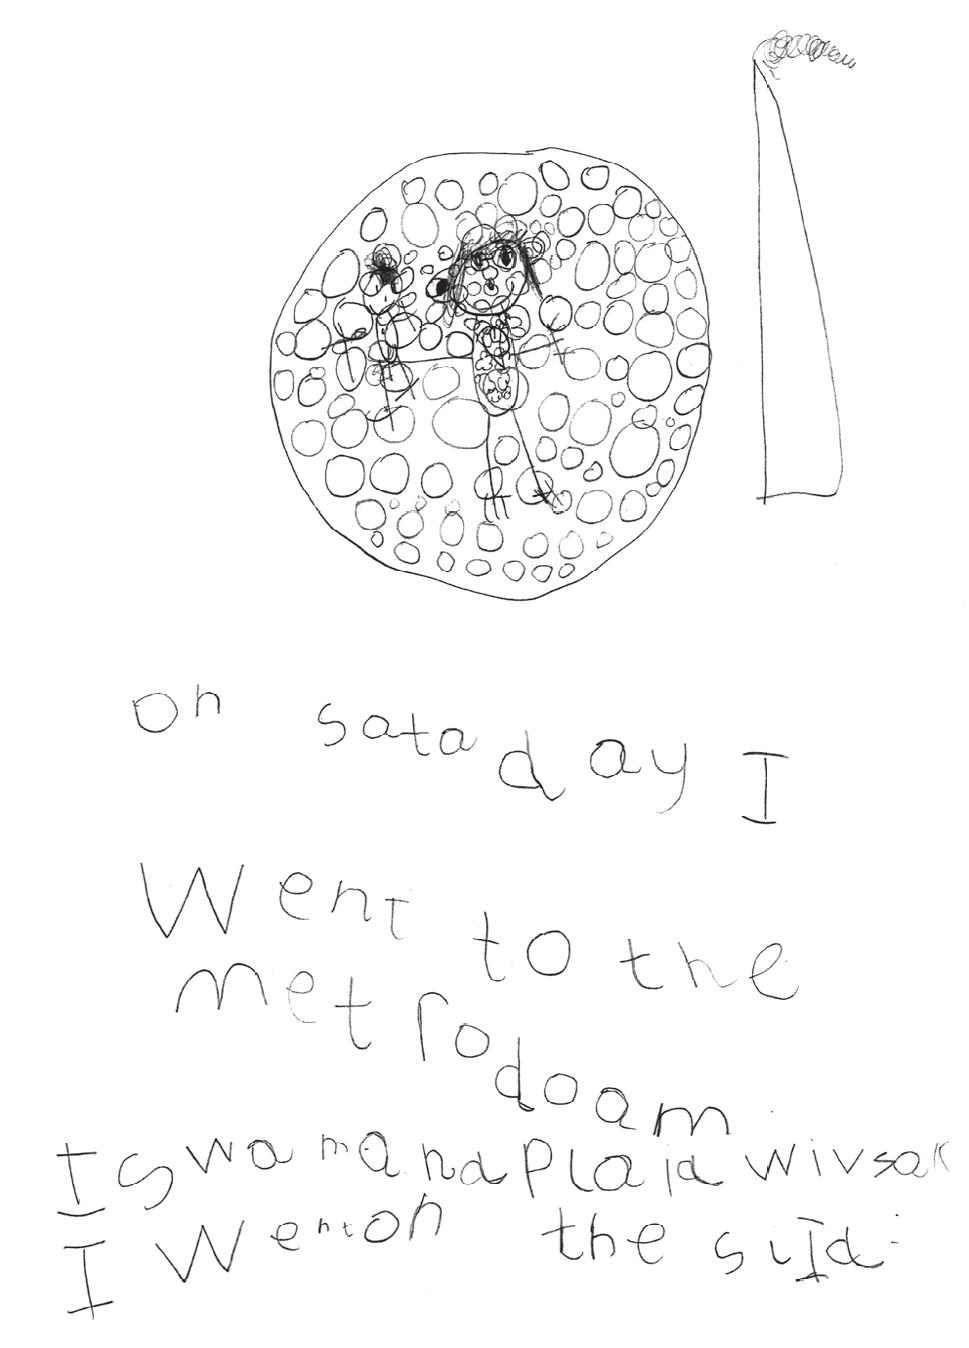 on sataday I
Went to the
metrodoam
I Swam and Plaid wivsak
I Went on the slId.